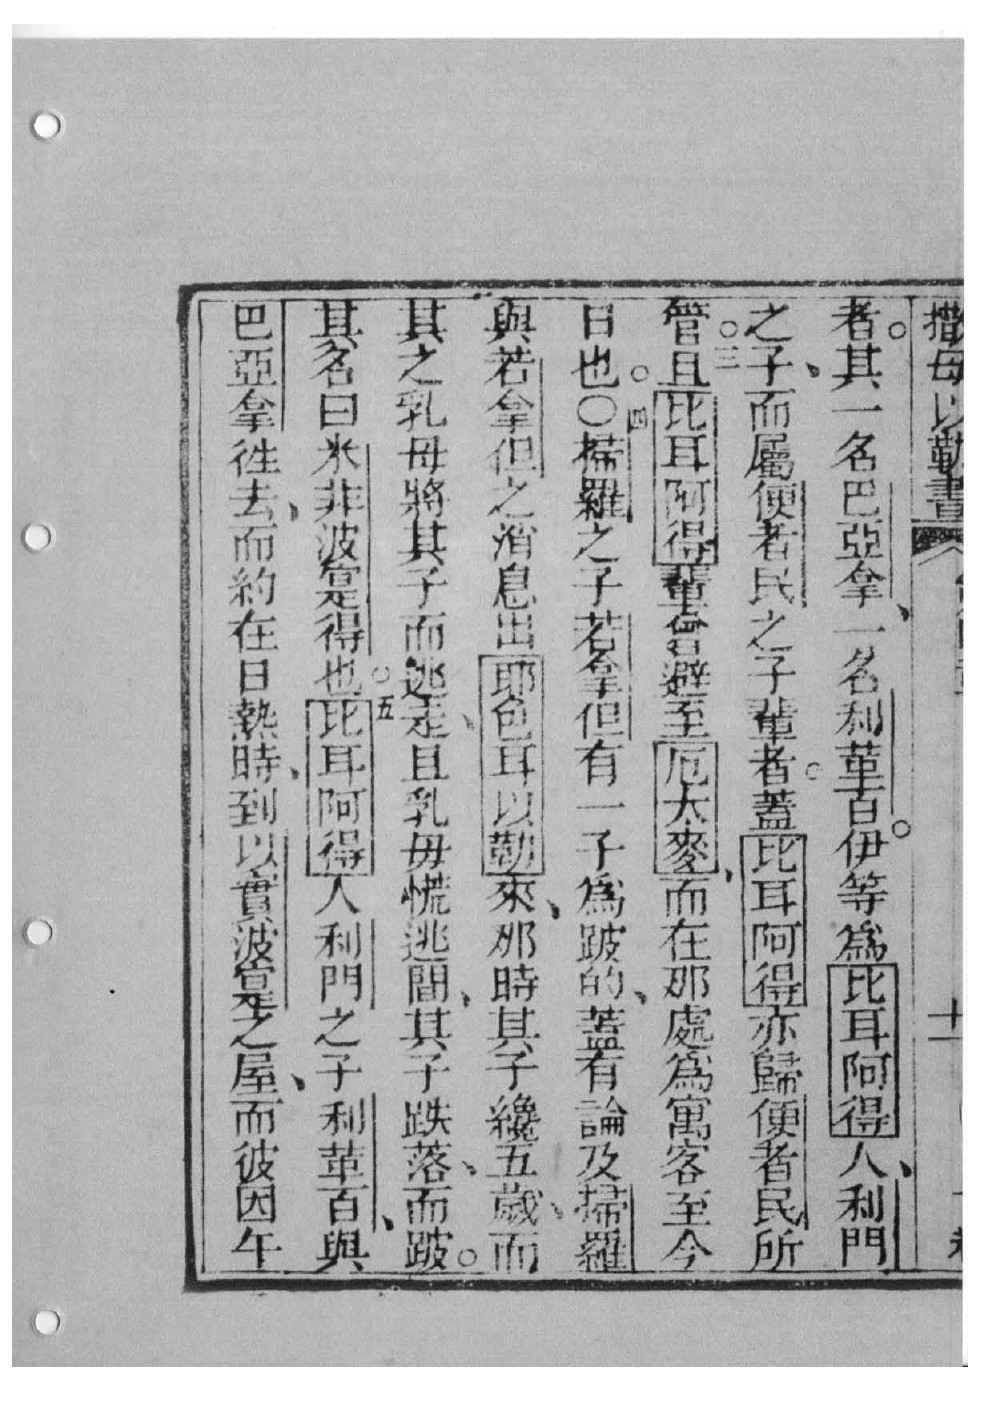 撒母以勒書
十一
者其一名巴亞拿、一名利革百。伊等爲比耳阿得人、利門
之子、而屬便者民之子輩者。蓋比耳阿得亦歸便者民所
管。三且比耳阿得輩曾避至厄太麥、而在那處爲寓客至今
日也。〇四掃羅之子若拿但有一子爲跛的、蓋有論及掃羅
與若拿但之消息出耶色耳以勒來、那時其子纔五歲、而
其之乳母將其子而逃走、且乳母慌逃間、其子跌落、而跛。
其名曰米非波寔得也。五比耳阿得人利門之子利革百、與
巴亞拿徃去、而約在日熱時、到以實波寔之屋、而彼因午